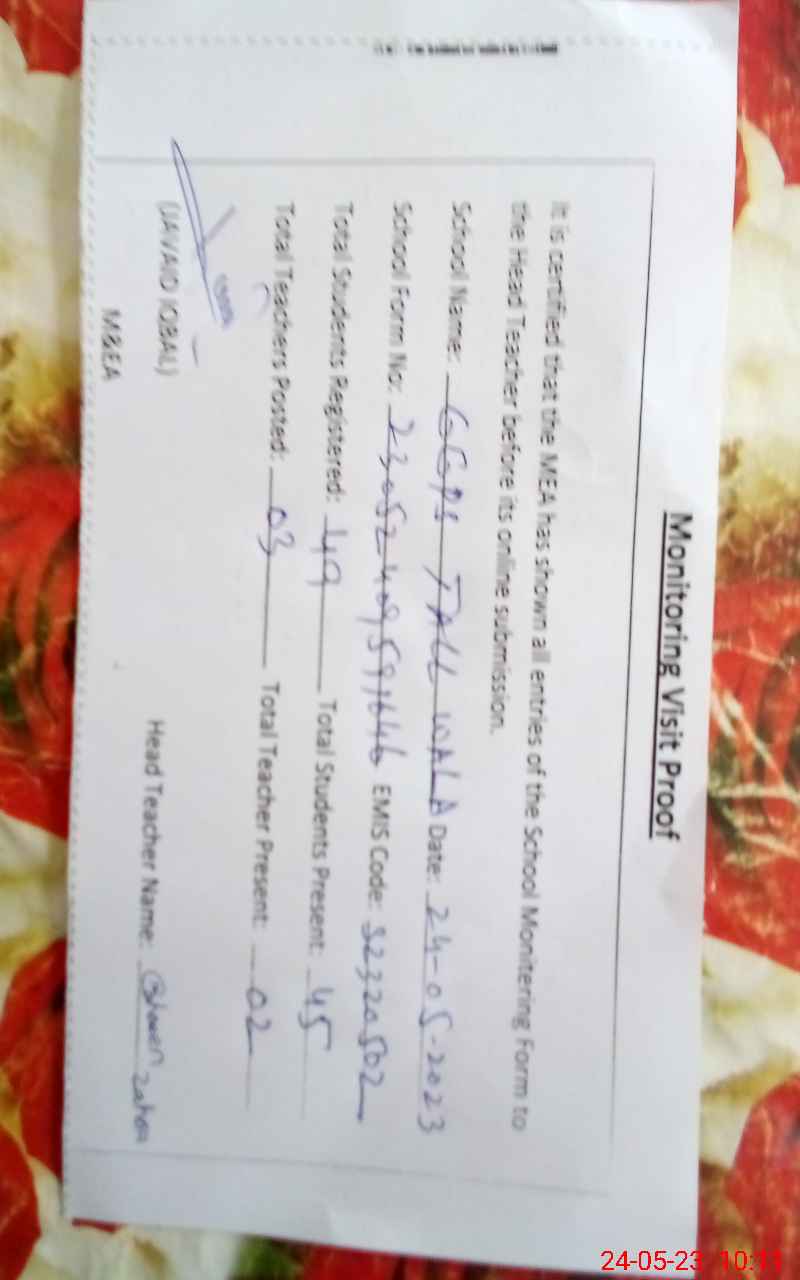 Monitoring Visit Proof
It is certified that the MEA has shown all entries of the School Monitering Form to
the Head Teacher before its online submission.
School Name: GGPS TALL WALA Date: 24-05-2023
School Form No: EMIS Code: 32320502
Total Students Registered: 49 Total Students Present: 45
Total Teachers Posted: 03 Total Teacher Present: 02
(JAVAID IQBAL)
M&EA
Head Teacher Name:
24-05-23 10:11